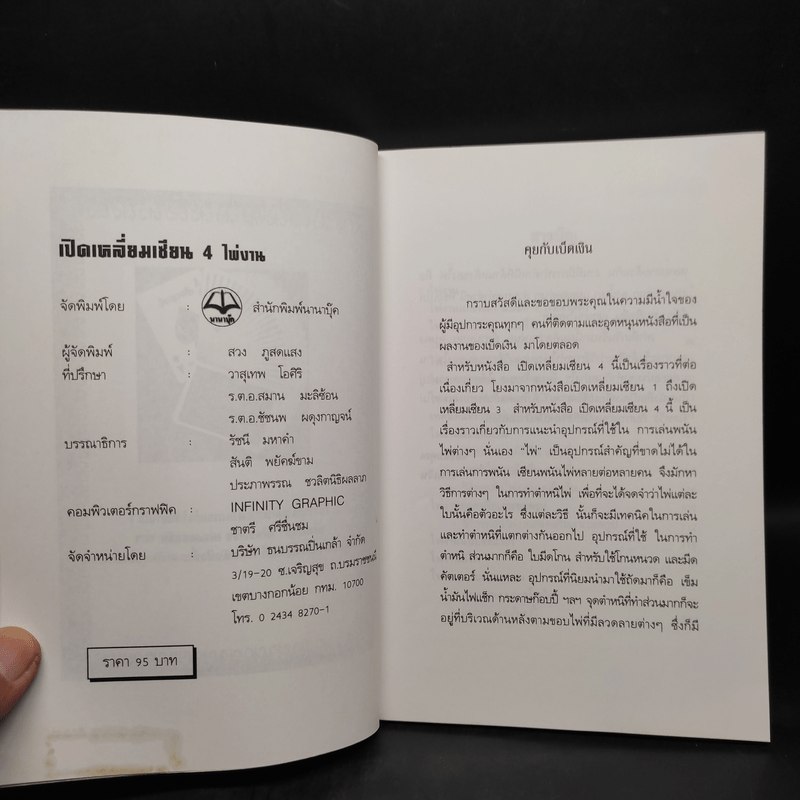 เปิดเหลี่ยมเซียน 4 ไพ่งาน
จัดพิมพ์โดย : นานาบุ๊ค สำนักพิมพ์นานาบุ๊ค
ผู้จัดพิมพ์ : สวง ภูสดแสง
ที่ปรึกษา : วาสุเทพ โอศิริ
ร.ต.อ.สมาน มะลิซ้อน
ร.ต.อ.ชัชนพ ผดุงกาญจน์
บรรณาธิการ : รัชนี มหาคำ
สันติ พยัคฆ์ขาม
ประภาพรรณ ชวลิตนิธิผลลาภ
คอมพิวเตอร์กราฟฟิค : INFINITY GRAPHIC
ชาตรี ศรีชื่นชม
จัดจำหน่ายโดย : บริษัท ธนบรรณปิ่นเกล้า จำกัด
3/19-20 ซ.เจริญสุข ถ.บรมราชชนนี
เขตบางกอกน้อย กทม. 10700
โทร. 0 2434 8270-1
ราคา 95 บาท
คุยกับเบ็ดเงิน
กราบสวัสดีและขอขอบพระคุณในความมีน้ำใจของ
ผู้มีอุปการะคุณทุกๆ คนที่ติดตามและอุดหนุนหนังสือที่เป็น
ผลงานของเบ็ดเงิน มาโดยตลอด
สำหรับหนังสือ เปิดเหลี่ยมเซียน 4 นี้เป็นเรื่องราวที่ต่อ
เนื่องเกี่ยว โยงมาจากหนังสือเปิดเหลี่ยมเซียน 1 ถึงเปิด
เหลี่ยมเซียน 3 สำหรับหนังสือ เปิดเหลี่ยมเซียน 4 นี้ เป็น
เรื่องราวเกี่ยวกับการแนะนำอุปกรณ์ที่ใช้ใน การเล่นพนัน
ไพ่ต่างๆ นั่นเอง "ไพ่" เป็นอุปกรณ์สำคัญที่ขาดไม่ได้ใน
การเล่นการพนัน เซียนพนันไพ่หลายต่อหลายคน จึงมักหา
วิธีการต่างๆ ในการทำตำหนิไพ่ เพื่อที่จะได้จดจำว่าไพ่แต่ละ
ใบนั้นคือตัวอะไร ซึ่งแต่ละวิธี นั้นก็จะมีเทคนิคในการเล่น
และทำตำหนิที่แตกต่างกันออกไป อุปกรณ์ที่ใช้ ในการทำ
ตำหนิ ส่วนมากก็คือ ใบมีดโกน สำหรับใช้โกนหนวด และมีด
คัตเตอร์ นั่นแหละ อุปกรณ์ที่นิยมนำมาใช้ถัดมาก็คือ เข็ม
น้ำมันไฟแช็ก กระดาษก๊อบปี้ ฯลฯ จุดตำหนิที่ทำส่วนมากก็จะ
อยู่ที่บริเวณด้านหลังตามขอบไพ่ที่มีลวดลายต่างๆ ซึ่งก็มี